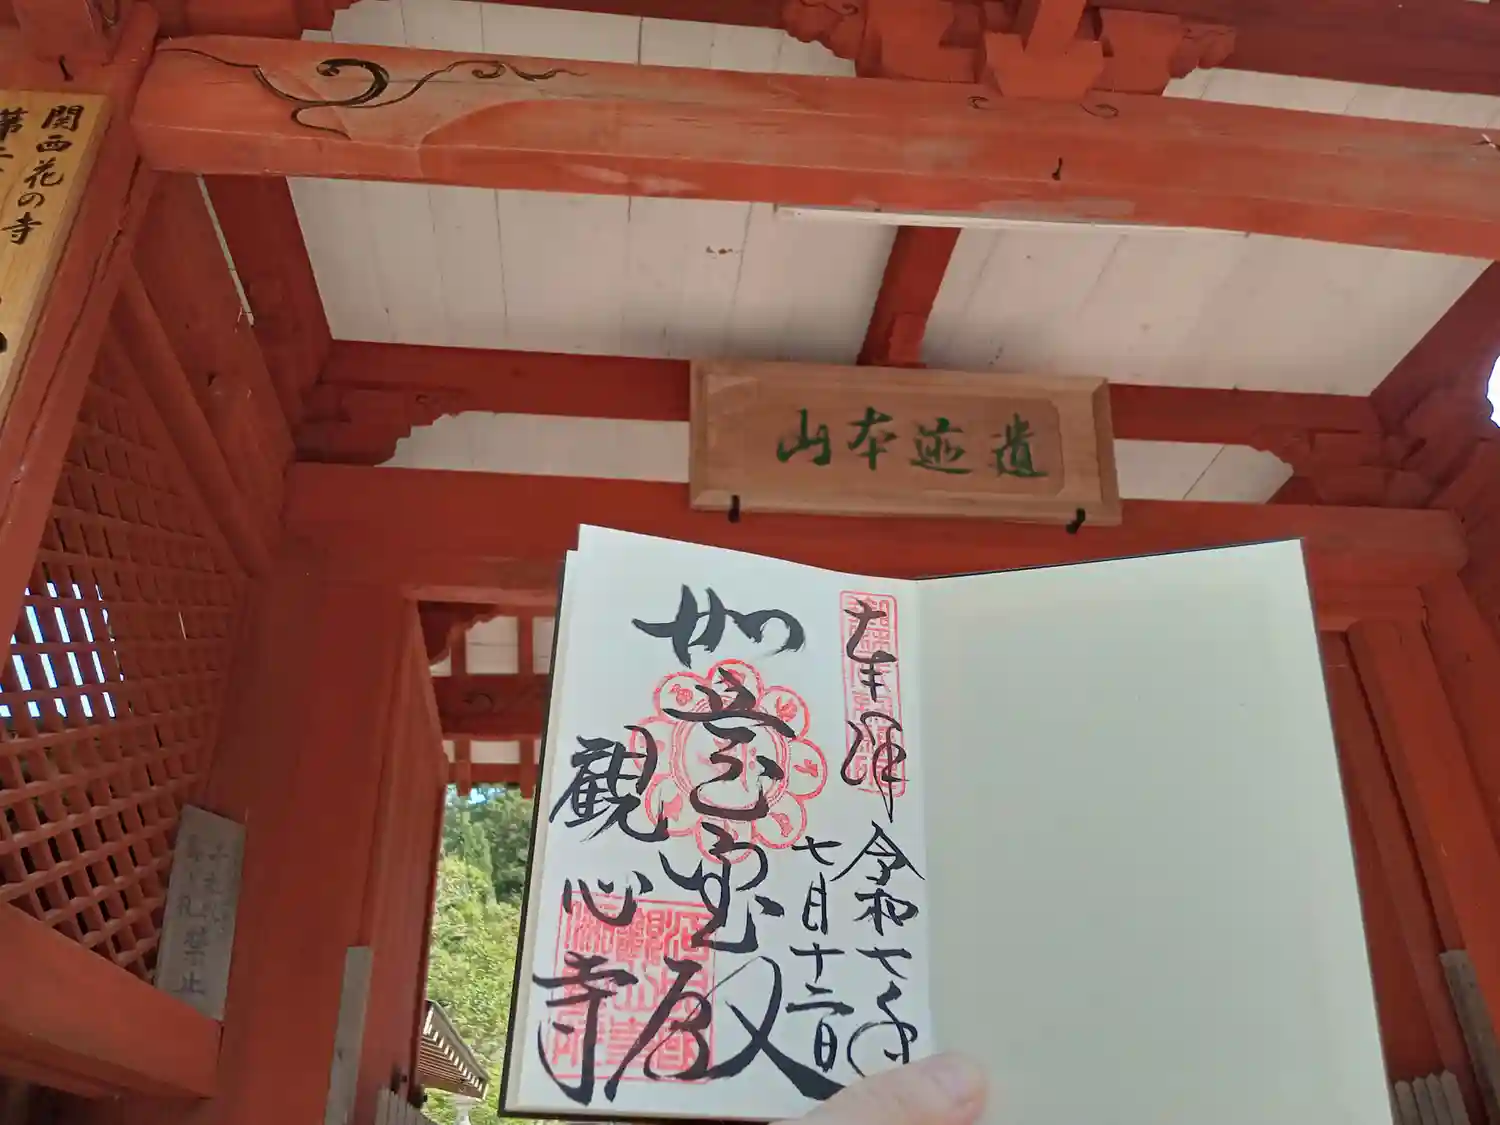 関西花の寺
第二
遺跡本山
奉拝
令和七年
七月十二日
如意宝殿
観心寺
礼禁止